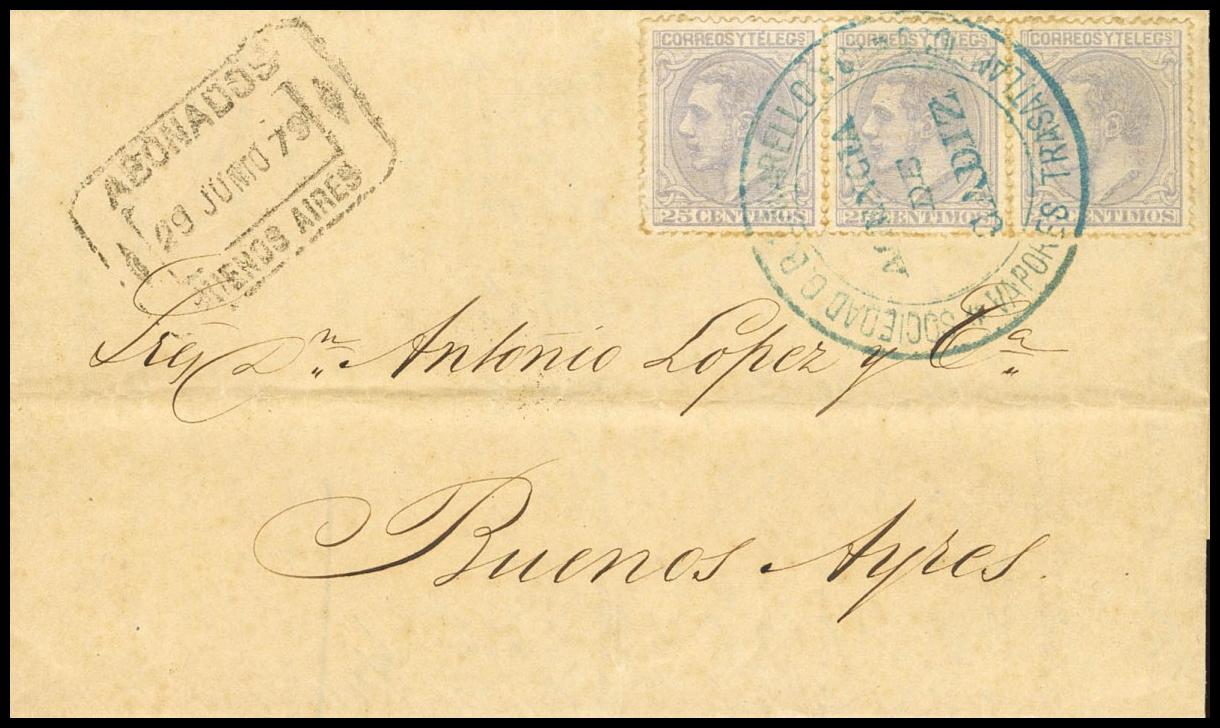 ABONADOS
29 JUNIO 79
BUENOS AIRES
CORREOS Y TÉLEGS
CORREOS Y TÉLEGS
CORREOS Y TÉLEGS
25 CENTIMOS
25 CENTIMOS
CENTIMOS
SOCIEDAD
VAPORES TRASATLANTICOS
AGENCIA
DE
CADIZ
Sres Dn. Antonio Lopez y Ca.
Buenos Ayres.